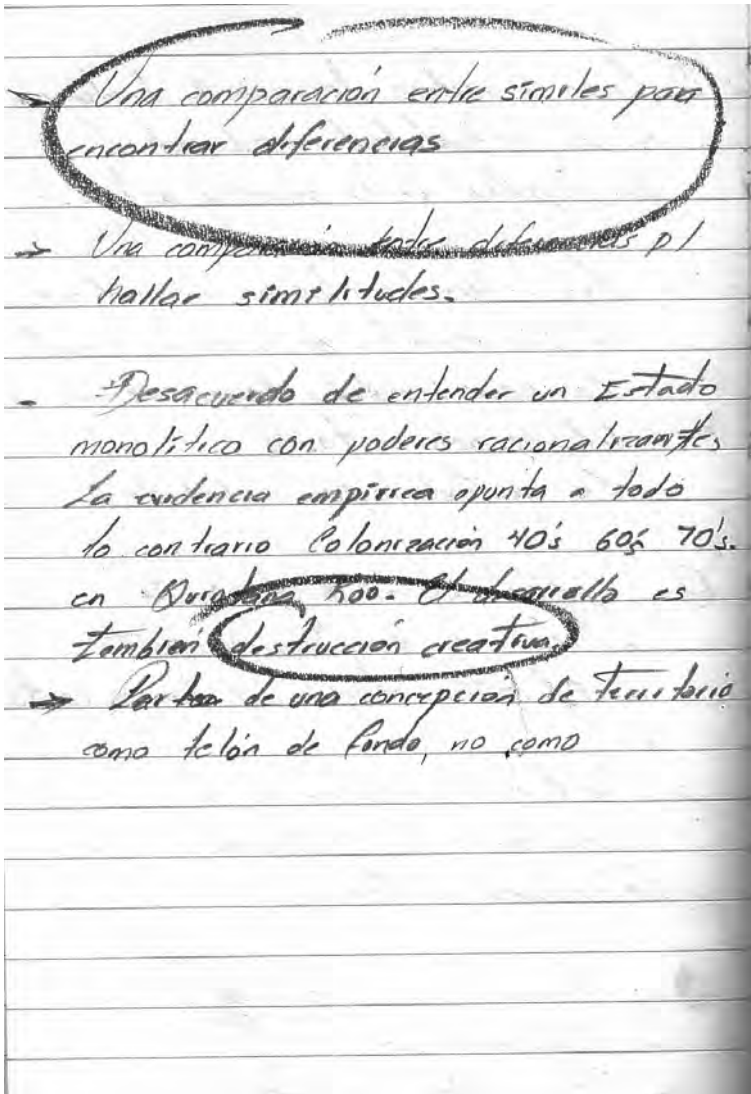 → Una comparación entre símiles para
encontrar diferencias
→ Una comparación entre diferencias p/
hallar similitudes.
- Desacuerdo de entender un Estado
monolítico con poderes racionalizantes
La evidencia empírica apunta a todo
lo contrario Colonización 40's 60's 70's.
en Quintana Roo. El desarrollo es
también destrucción creativa.
→ de una concepción de territorio
como telón de fondo, no como